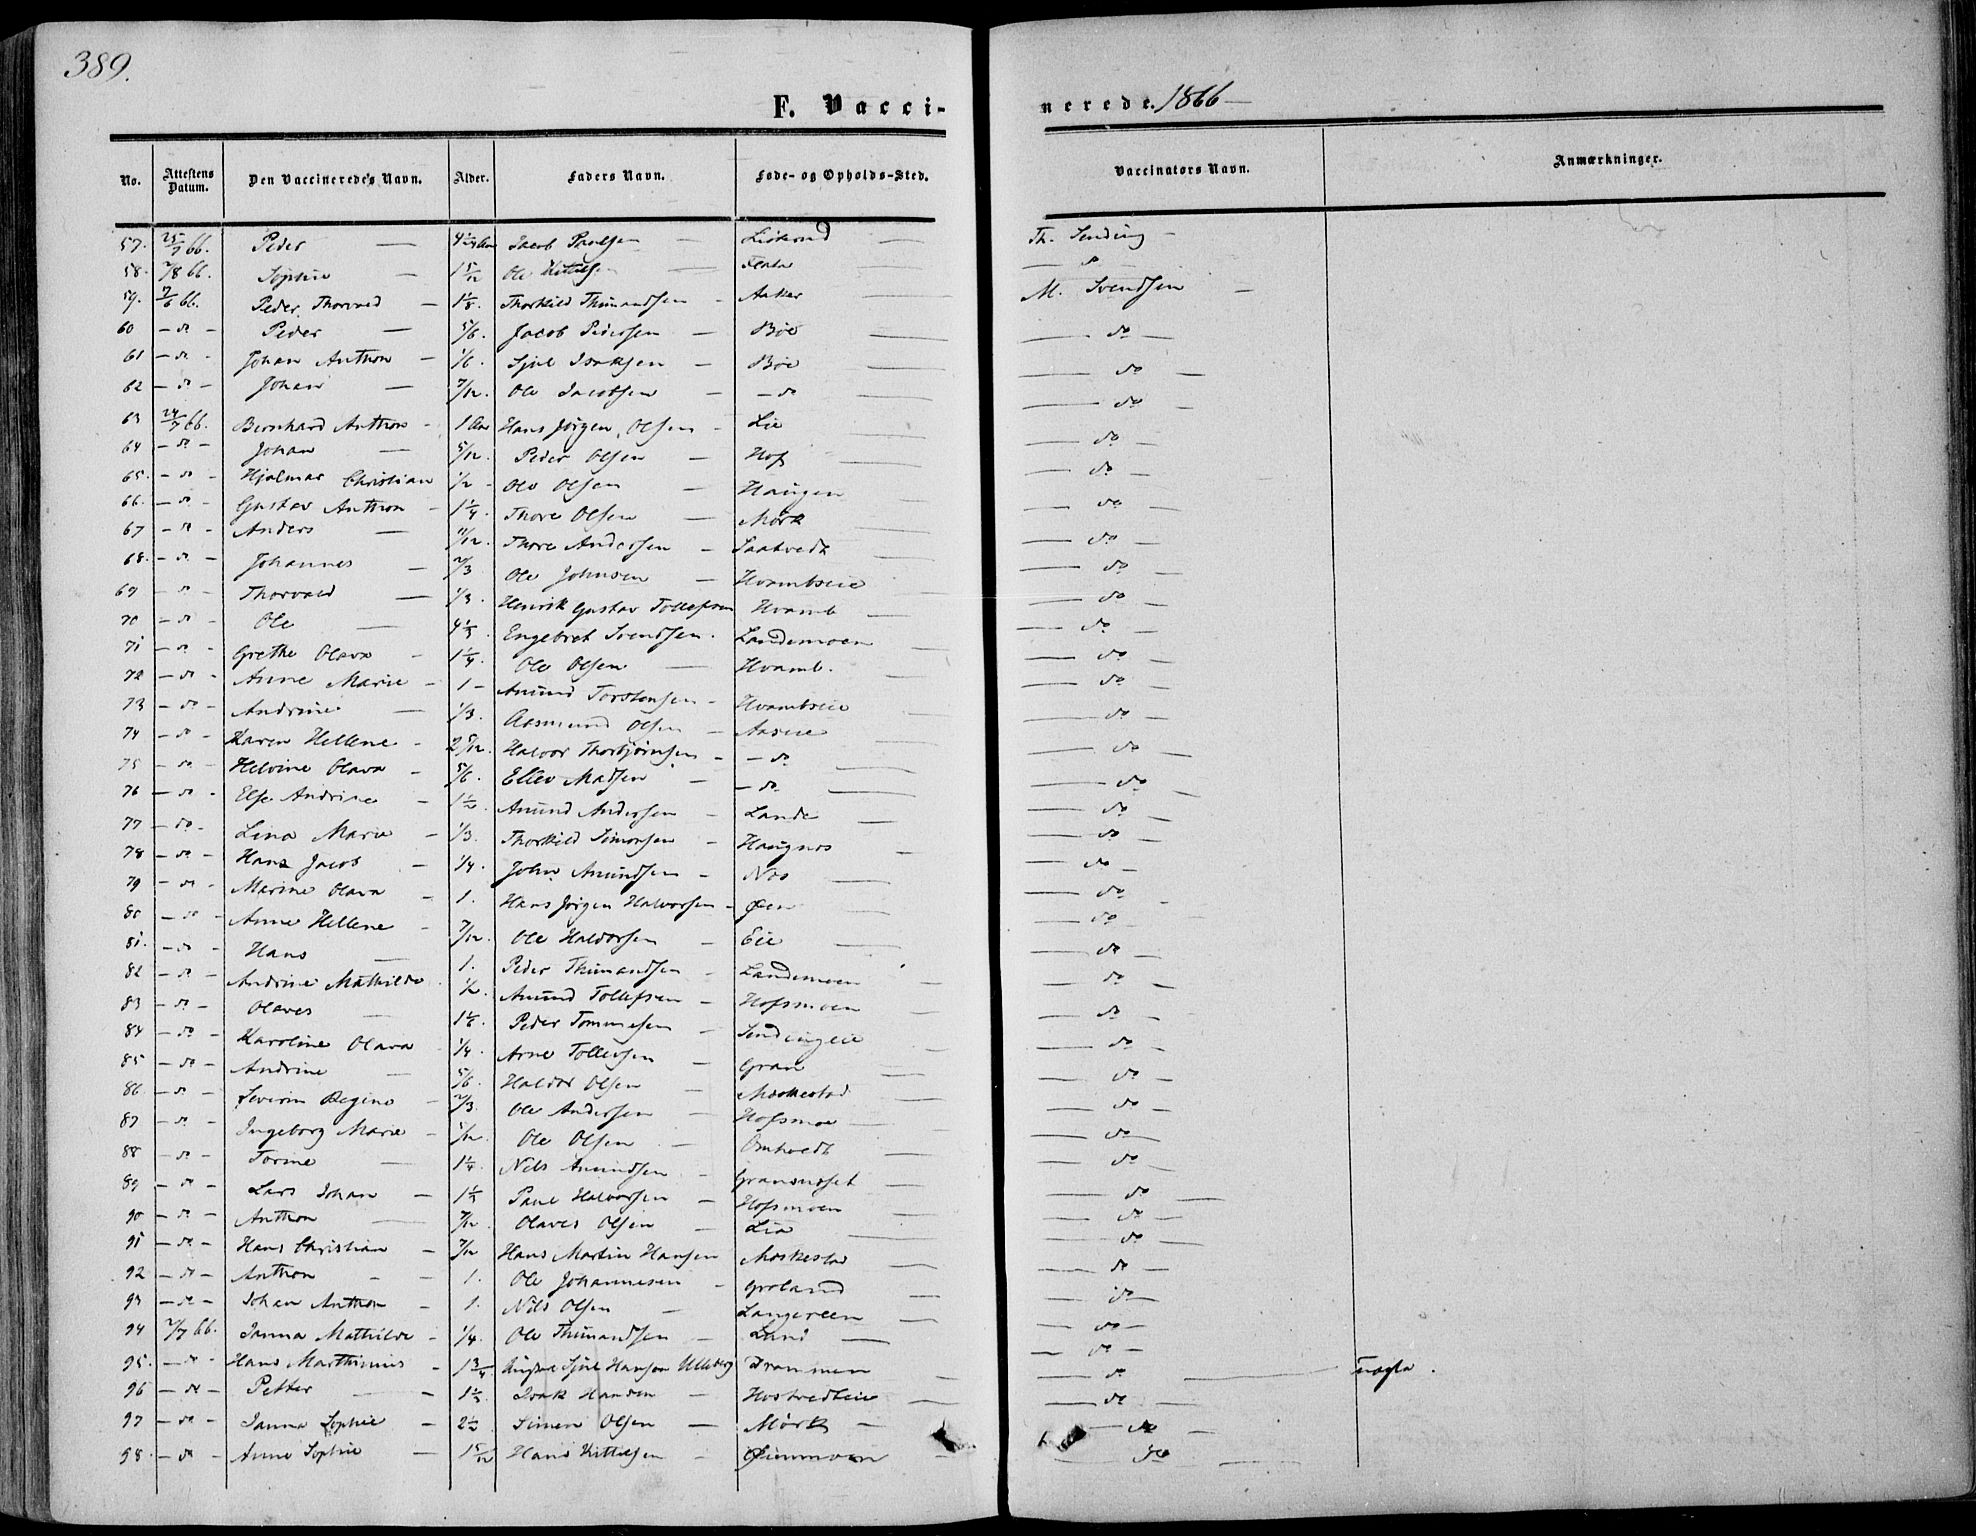 389.
F. Vaccinerede. 1866 —
No. Attestens Datum. Den Vaccineredes Navn. Alder. Faders Navn. Føde- og Opholds-Sted. Vaccinators Navn. Anmærkninger.
57. 25/7 66. Peder — 4 1/2 Aar Jacob Paulsen — Th. Sending —
58. 7/8 66. Sophie — 1 5/12 Ole Kittilsen — Flata — do
59. 7/6 66. Peder Thorvald — 1 1/8. Thorkild Thimandsen — Aaker — M. Svendsen —
60 — do — Peder — 5/6. Jacob Pedersen — Böe — do —
61 — do — Johan Anthon — 1/6. Sjul Isaksen — Böe — do —
62 — do — Johan — 7/12. Ole Jacobsen — do — do —
63 24/7 66. Bernhard Anthon — 1 Aar Hans Jörgen Olsen — Lie — do —
64 — do — Johan — 5/12. Peder Olsen — Hof — do —
65. — do — Hjalmar Christian 1/2 — Ole Olsen — Haugen — do —
66. — do — Gustav Anthon — 1 1/4. Thore Olsen — Mörk — do —
67 — do — Anders — 11/12. Thore Andersen — Saatvedt — do —
68. — do — Johannes — 2/3 Ole Johnsen — Hvambseie — do —
69 — do — Thorvald — 1/3. Henrik Gustav Tollefsen Hvamb — do —
70 — do — Ole — 4 1/3. Engebret Svendsen. Landemoen — do —
71 — do — Grethe Olava — 1 1/4. Ole Olsen — Hvamb. — do —
72 — do — Anne Marie — 1 — Anund Torstensen — Hvambseie — do —
73 — do — Andrine — 1/3. Aasmund Olsen — Aaseie — do —
74 — do — Karen Hellene — 2 5/12. Halvor Thorbjörnsen — do — do —
75 — do — Helvine Olava — 5/6. Ellev Madsen — do — do —
76 — do — Else Andrine — 1 1/2. Anund Andersen — Lande — do —
77 — do — Lina Marie — 1/3. Thorkild Simonsen — Haugnæs — do —
78 — do — Hans Jacob — 1/4. John Anundsen — Næs — do —
79 — do — Marine Olava — 1. Hans Jörgen Halvorsen — Øen — do —
80 — do — Anne Hellene — 7/12. Ole Halvorsen — Eie — do —
81. — do — Hans — 1. Peder Thimandsen — Landemoen — do —
82 — do — Andrine Mathilde 1/2 Anund Tollefsen — Hofsmoen — do —
83 — do — Olaves — 1 1/6. Peder Tommesen — Sendingeie — do —
84 — do — Karoline Olava 1/4. Arne Tollevsen — Gran — do —
85 — do — Andrine — 5/6. Halvor Olsen — Moskestad — do —
86 — do — Severin Regine — 2/3. Ole Andersen — Hofsmoe — do —
87 — do — Ingeborg Marie — 5/12. Ole Olsen — Omholdt — do —
88 — do — Torine — 1 1/4. Nils Anundsen — Gransnæset — do —
89 — do — Lars Johan — 1 1/3 Paul Halvorsen — Hofsmoen — do —
90 — do — Anthon — 7/12. Olaves Olsen — Lia — do —
91 — do — Hans Christian — 7/12 Hans Martin Hansen Moskestad — do —
92 — do — Anthon — 1. Ole Johannesen — Groland — do —
93 — do — Johan Anthon — 1. Nils Olsen — Langereen — do —
94 7/7 66. Janna Mathilde — 1/4. Ole Thimandsen — Land — do —
95. — do — Hans Marthinius — 1 3/4. Sjul Hansen Ulleberg Drammen — do —
96 — do — Petter — 1 1/3. Isak Hansen — Hostvedteie — do —
97 — do — Janna Sophie — 2 1/2 Simen Olsen — Mörk — do —
98. — do — Anne Sophie — 1 5/12 Hans Kittilsen — Øienmoen — do —